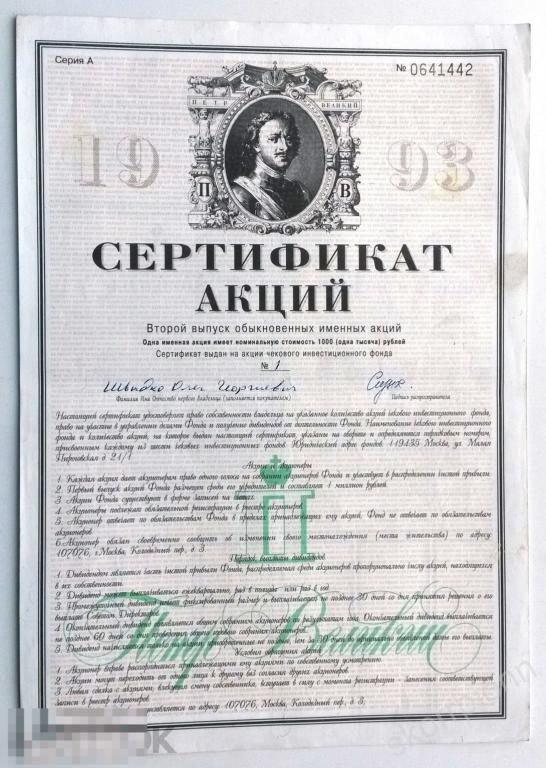 Серия А
№ 0641442
ПЕТР ВЕЛИКИЙ
19 93
П В
СЕРТИФИКАТ
АКЦИЙ
Второй выпуск обыкновенных именных акций
Одна именная акция имеет номинальную стоимость 1000 (одна тысяча) рублей
Сертификат выдан на акции чекового инвестиционного фонда
№ 1
Олег Георгиевич
Фамилия Имя Отчество первого владельца (заполняется покупателем)
Подпись распространителя
Настоящий сертификат удостоверяет право собственности владельца на указанное количество акций чекового инвестиционного фонда,
право на участие в управлении делами Фонда и получение дивидендов от деятельности Фонда. Наименование чекового инвестиционного
фонда и количество акций, на которое выдан настоящий сертификат, указаны на обороте и определяются порядковым номером,
присвоенным каждому из шести чековых инвестиционных фондов. Юридический адрес фондов: 119435 Москва, ул. Малая
Пироговская д. 21/1
Акции и акционеры
1. Каждая акция дает акционерам право одного голоса на собрании акционеров Фонда и участвует в распределении чистой прибыли.
2. Первый выпуск акций Фонда размещен среди его учредителей и составляет 1 миллион рублей.
3. Акции Фонда существуют в форме записей на счетах.
4. Акционеры подлежат обязательной регистрации в реестре акционеров.
5. Акционер отвечает по обязательствам Фонда в пределах принадлежащих ему акций, Фонд не отвечает по обязательствам
акционеров.
6. Акционер обязан своевременно сообщить об изменении своего местонахождения (места жительства) по адресу
107076, г.Москва, Колодезный пер, д 3.
П
Порядок выплаты дивидендов
1. Дивидендом является часть чистой прибыли Фонда, распределяемая среди акционеров пропорционально числу акций, находящихся
в их собственности.
2. Дивиденд может выплачиваться ежеквартально, раз в полгода или раз в год.
3. Промежуточный дивиденд имеет фиксированный размер и выплачивается не позднее 30 дней со дня принятия решения о его
выплате Советом Директоров.
4. Окончательный дивиденд объявляется общим собранием акционеров по результатам года. Окончательный дивиденд выплачивается
не позднее 60 дней со дня проведения общего годового собрания акционеров.
5. Дивиденд выплачивается только на акции, приобретенные не позднее, чем за 30 дней до официально объявленной даты его выплаты.
Петр Великий
Условия обращения акций
1. Акционер вправе распоряжаться принадлежащими ему акциями по собственному усмотрению.
2. Акции могут переходить от одного лица к другому без согласия других акционеров.
3. Любая сделка с акциями, влекущая смену собственника, вступает в силу с момента регистрации - занесения соответствующей
записи в реестр акционеров.
осуществляется по адресу 107076, Москва, Колодезный пер, д 3.